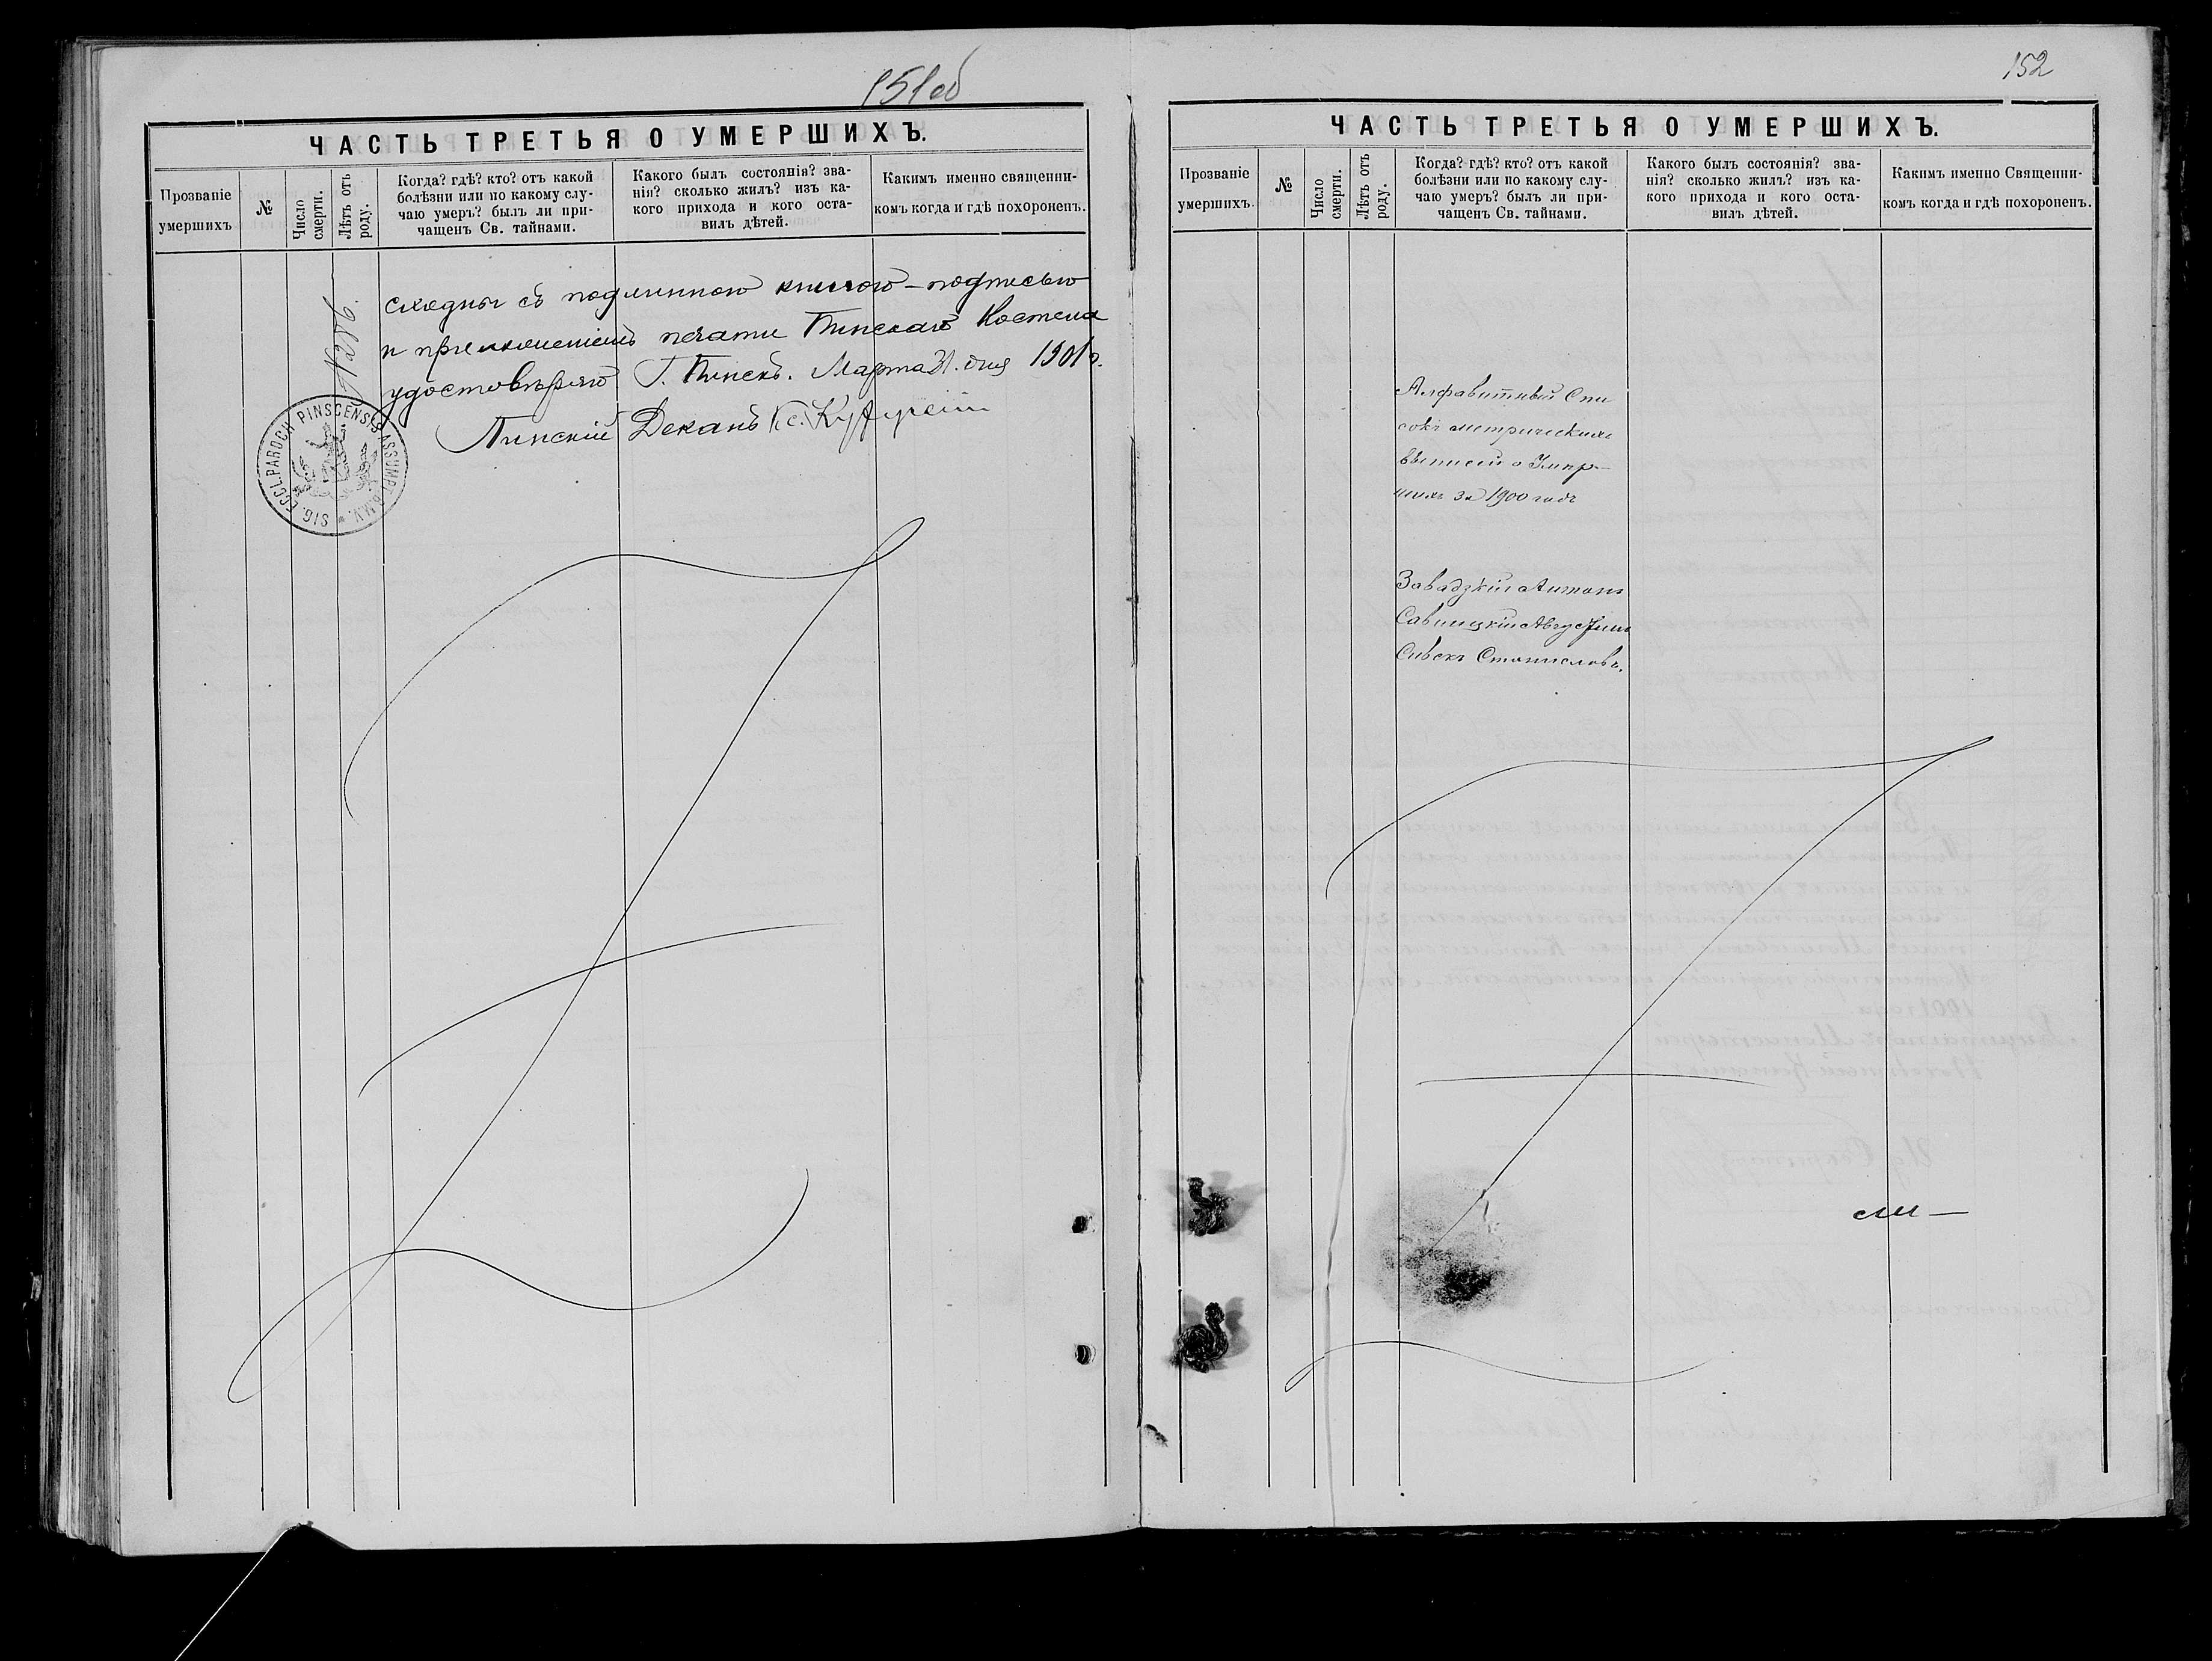 151об
ЧАСТЬ ТРЕТЬЯ О УМЕРШИХЪ.
Прозваніе умершихъ
№
Число смерти.
Лѣтъ отъ роду.
Когда? гдѣ? кто? отъ какой
болѣзни или по какому слу-
чаю умеръ? былъ ли при-
чащенъ Св. тайнами.
Какого былъ состоянія? зва-
нія? сколько жилъ? изъ ка-
кого прихода и кого оста-
вилъ дѣтей.
Какимъ именно священни-
комъ когда и гдѣ похороненъ.
№ 286.
сходны съ подлинною книгою – подписью
и приложеніемъ печати Пинскаго Костела
удостовѣряю Г. Пинскъ. Марта 31. дня 1901 г.
Пинскій Деканъ Кс.
SIG. ECCL. PAROCH PINSCENSIS ASSUMPT. B.M.V.
152
ЧАСТЬ ТРЕТЬЯ О УМЕРШИХЪ.
Прозваніе умершихъ.
№
Число смерти.
Лѣтъ отъ роду.
Когда? гдѣ? кто? отъ какой
болѣзни или по какому слу-
чаю умеръ? былъ ли при-
чащенъ Св. тайнами.
Какого былъ состоянія? зва-
нія? сколько жилъ? изъ ка-
кого прихода и кого оста-
вилъ дѣтей.
Какимъ именно Священни-
комъ когда и гдѣ похороненъ.
Алфавитный Спи
сокъ метрическихъ
выписей о Умер-
шихъ за 1900 годъ
Завадзкій Антонъ
Савицкій Августинъ
Сивекъ Станиславъ.